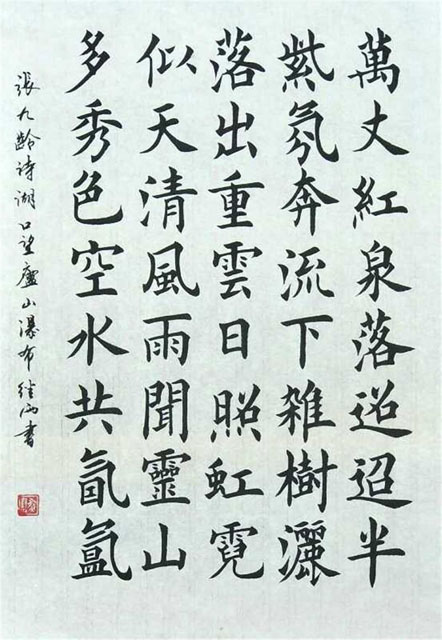 萬丈紅泉落迢迢半
紫氛奔流下雑樹灑
落出重雲日照虹霓
似天清風雨聞靈山
多秀色空水共氤氲
張九齡诗湖口望廬山瀑布書